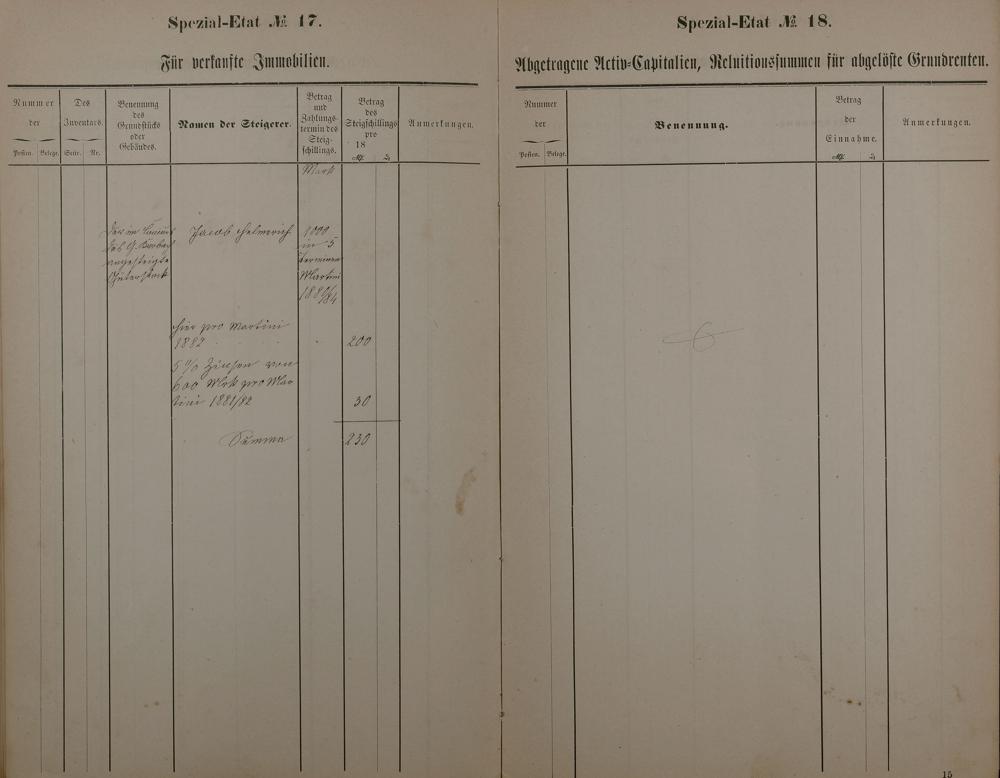 Spezial-Etat № 17.
Für verkaufte Immobilien.
Nummer
der
Posten. Belege.
Des
Inventars.
Seite. Nr.
Benennung
des
Grundstücks
oder
Gebäudes.
Namen der Steigerer.
Betrag
und
Zahlungs-
termin des
Steig-
schillings.
Betrag
des
Steigschillings
pro
18
Anmerkungen.
Mark
des G. Korbach
angesteigte
Güterstück
Jacob Helmerich
1000
in 5
terminen
Martini
1880/84
hier pro Martini
1882
200
5 % Zinsen von
600 Mrk pro Mar
tini 1881/82
30
Summa
230
Spezial-Etat № 18.
Abgetragene Activ-Capitalien, Reluitionssummen für abgelöste Grundrenten.
Nummer
der
Posten. Belege.
Benennung.
Betrag
der
Einnahme.
Anmerkungen.
15